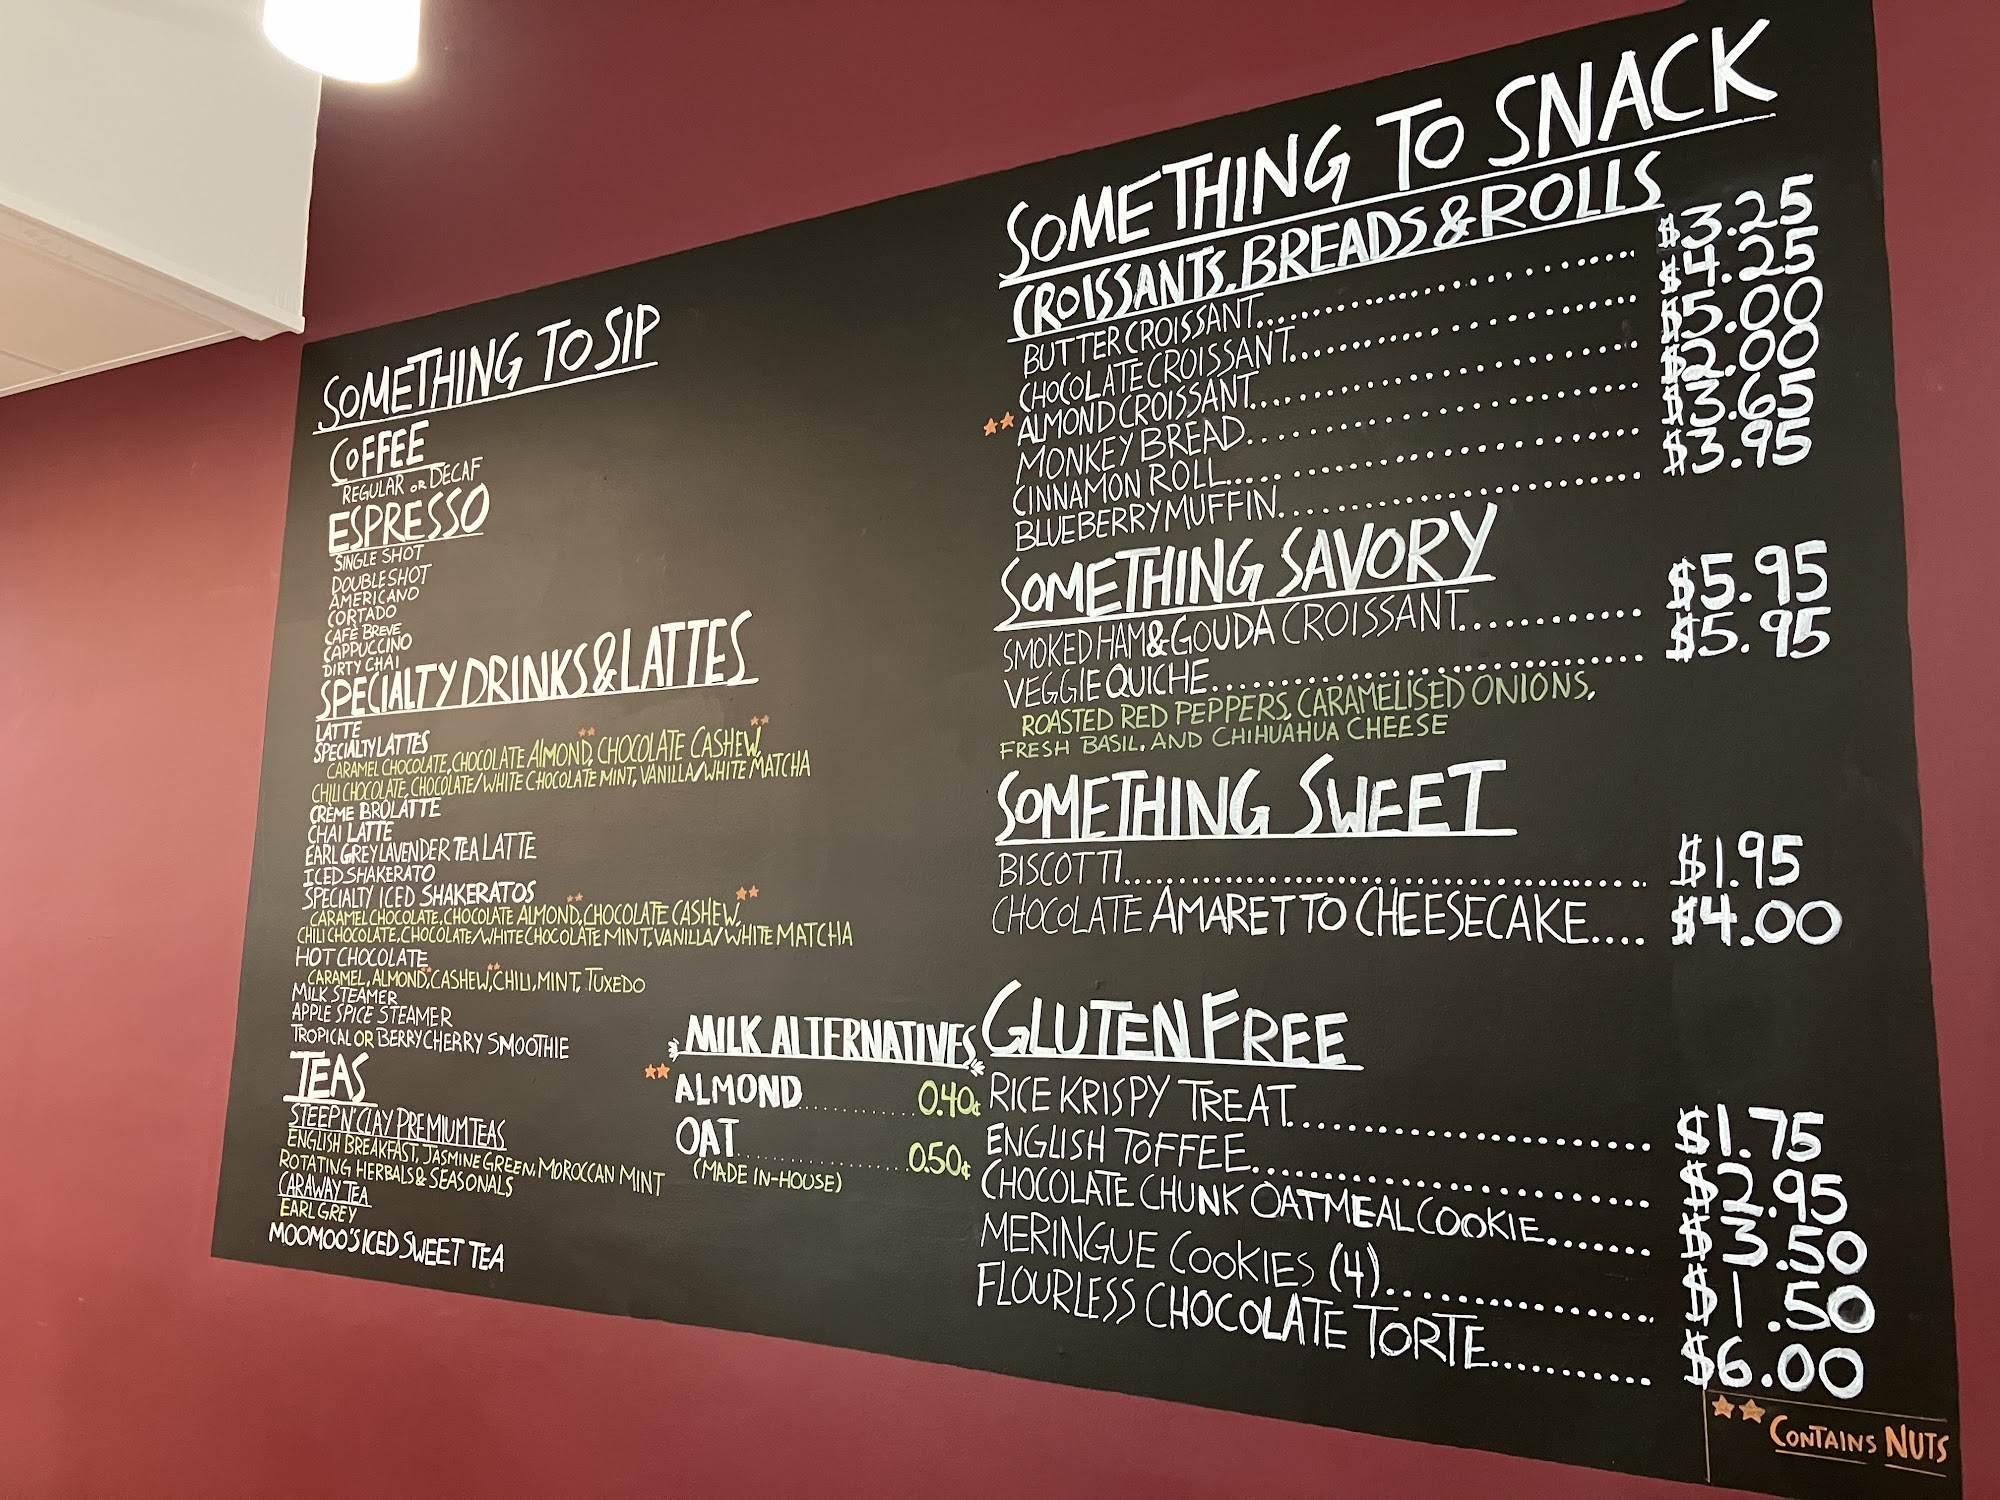 SOMETHING TO SIP
COFFEE
REGULAR OR DECAF
ESPRESSO
SINGLE SHOT
DOUBLE SHOT
AMERICANO
CORTADO
CAFÈ BREVE
CAPPUCCINO
DIRTY CHAI
SPECIALTY DRINKS & LATTES
LATTE
SPECIALTY LATTES
CARAMEL CHOCOLATE, CHOCOLATE ALMOND★★, CHOCOLATE CASHEW★★,
CHILI CHOCOLATE, CHOCOLATE/WHITE CHOCOLATE MINT, VANILLA/WHITE MATCHA
CRÈME BRÛLATTE
CHAI LATTE
EARL GREY LAVENDER TEA LATTE
ICED SHAKERATO
SPECIALTY ICED SHAKERATOS
CARAMEL CHOCOLATE, CHOCOLATE ALMOND★★, CHOCOLATE CASHEW★★,
CHILI CHOCOLATE, CHOCOLATE/WHITE CHOCOLATE MINT, VANILLA/WHITE MATCHA
HOT CHOCOLATE
CARAMEL, ALMOND★★, CASHEW★★, CHILI, MINT, TUXEDO
MILK STEAMER
APPLE SPICE STEAMER
TROPICAL OR BERRY CHERRY SMOOTHIE
TEAS
STEEP N' CLAY PREMIUM TEAS
ENGLISH BREAKFAST, JASMINE GREEN, MOROCCAN MINT
ROTATING HERBALS & SEASONALS
CARAWAY TEA
EARL GREY
MOOMOO'S ICED SWEET TEA
MILK ALTERNATIVES
★★ ALMOND............0.40¢
OAT............0.50¢
(MADE IN-HOUSE)
SOMETHING TO SNACK
CROISSANTS, BREADS & ROLLS
BUTTER CROISSANT............$3.25
CHOCOLATE CROISSANT............$4.25
★★ ALMOND CROISSANT............$5.00
MONKEY BREAD............$2.00
CINNAMON ROLL............$3.65
BLUEBERRY MUFFIN............$3.95
SOMETHING SAVORY
SMOKED HAM & GOUDA CROISSANT............$5.95
VEGGIE QUICHE............$5.95
ROASTED RED PEPPERS, CARAMELISED ONIONS,
FRESH BASIL, AND CHIHUAHUA CHEESE
SOMETHING SWEET
BISCOTTI............$1.95
CHOCOLATE AMARETTO CHEESECAKE....$4.00
GLUTEN FREE
RICE KRISPY TREAT............$1.75
ENGLISH TOFFEE............$2.95
CHOCOLATE CHUNK OATMEAL COOKIE.......$3.50
MERINGUE COOKIES (4)............$1.50
FLOURLESS CHOCOLATE TORTE..........$6.00
★★ CONTAINS NUTS